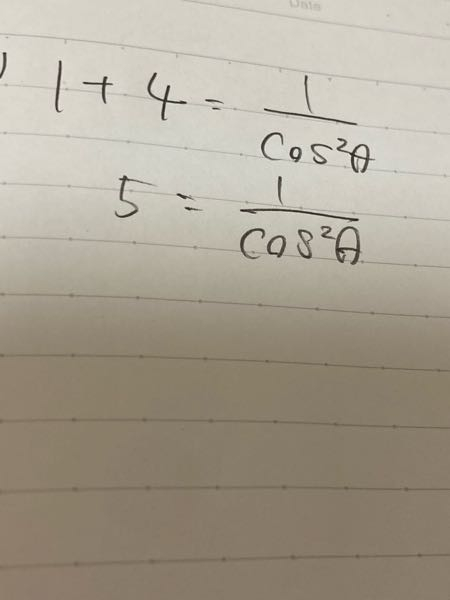 Date
) 1 + 4 = 1/cos²θ
5 = 1/cos²θ